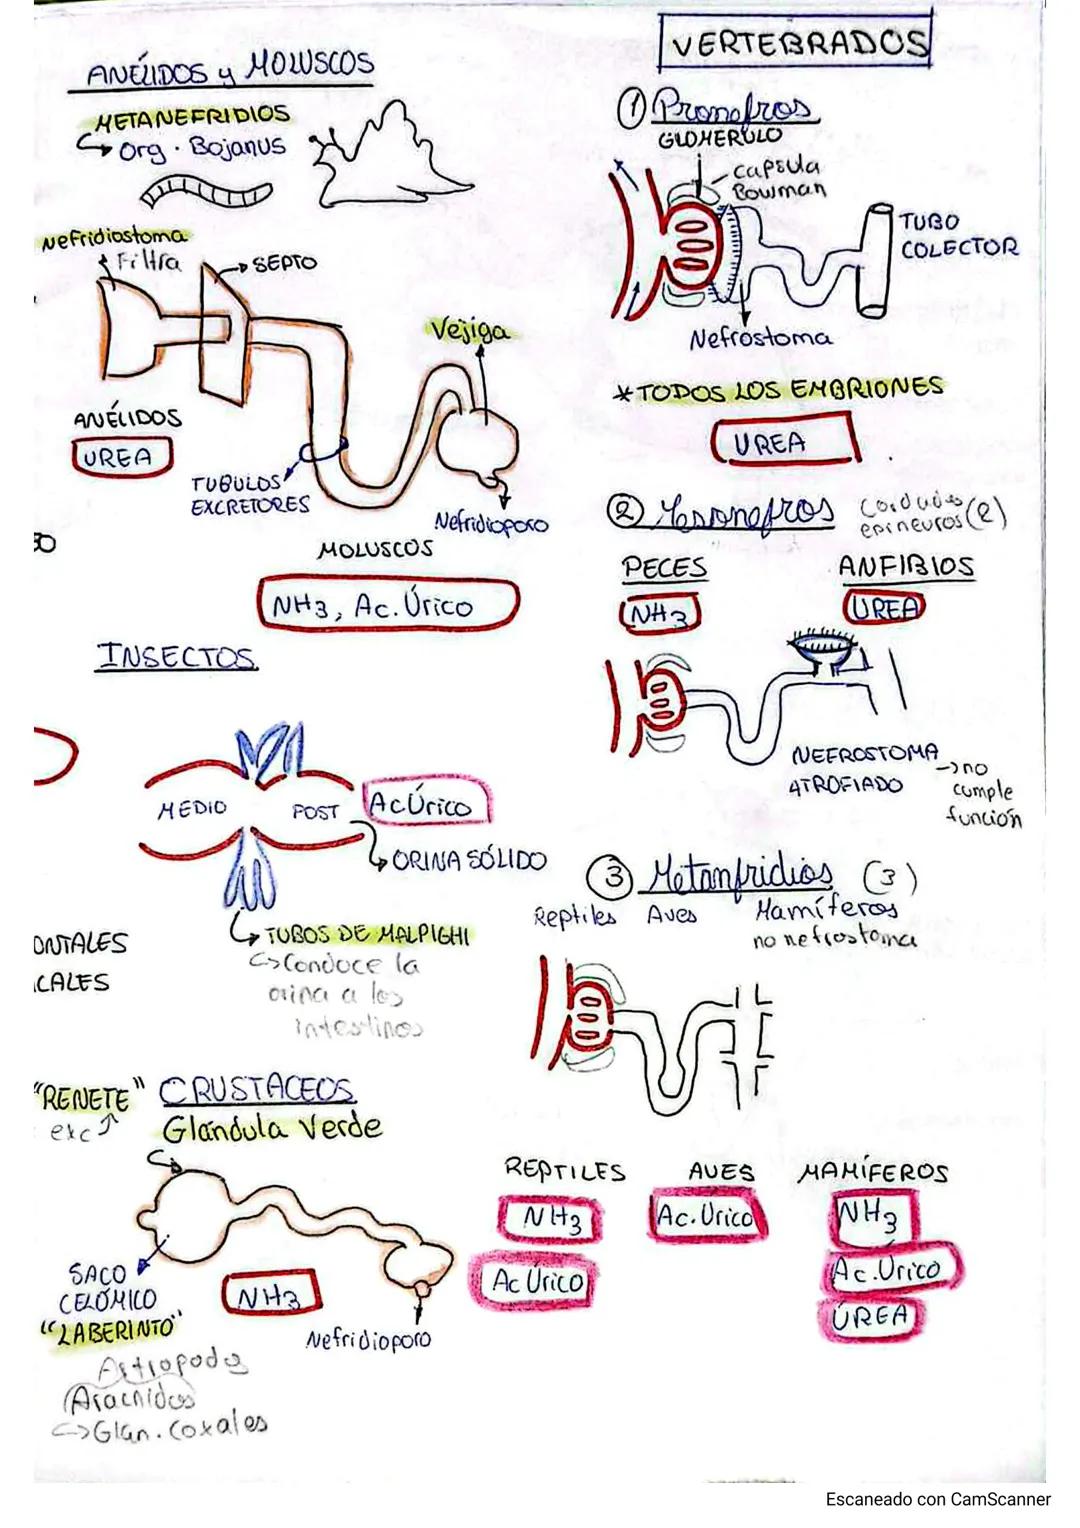 ANÉLIDOS y MOLUSCOS
METANEFRIDIOS
org. Bojanus
Nefridiostoma
Filtra
SEPTO
Vejiga
ANÉLIDOS
UREA
TUBULOS
EXCRETORES
Nefridioporo
MOLUSCOS
NH3, Ac. Úrico
INSECTOS
MEDIO
POST
Ac Úrico
ORINA SÓLIDO
TUBOS DE MALPIGHI
Conduce la
orina a los
intestinos
ONTALES
CALES
"RENETE"
exc
CRUSTACEOS
Glandula Verde
SACO
CELÓMICO
"LABERINTO"
NH3
Nefridioporo
Artropodos
Aracnidos
Glan. Coxales
VERTEBRADOS
1 Pronefros
GLOMERULO
capsula
Bowman
TUBO
COLECTOR
Nefrostoma
* TODOS LOS EMBRIONES
UREA
2 Mesonefros
Cordados
epineuros (2)
PECES
NH3
ANFIBIOS
UREA
NEFROSTOMA
ATROFIADO
no
cumple
función
3 Metanfridios (3)
Reptiles Aves Mamíferos
no nefrostoma
REPTILES AVES MAMÍFEROS
NH3 Ac. Urico NH3
Ac Úrico Ac. Úrico
ÚREA
Escaneado con CamScanner